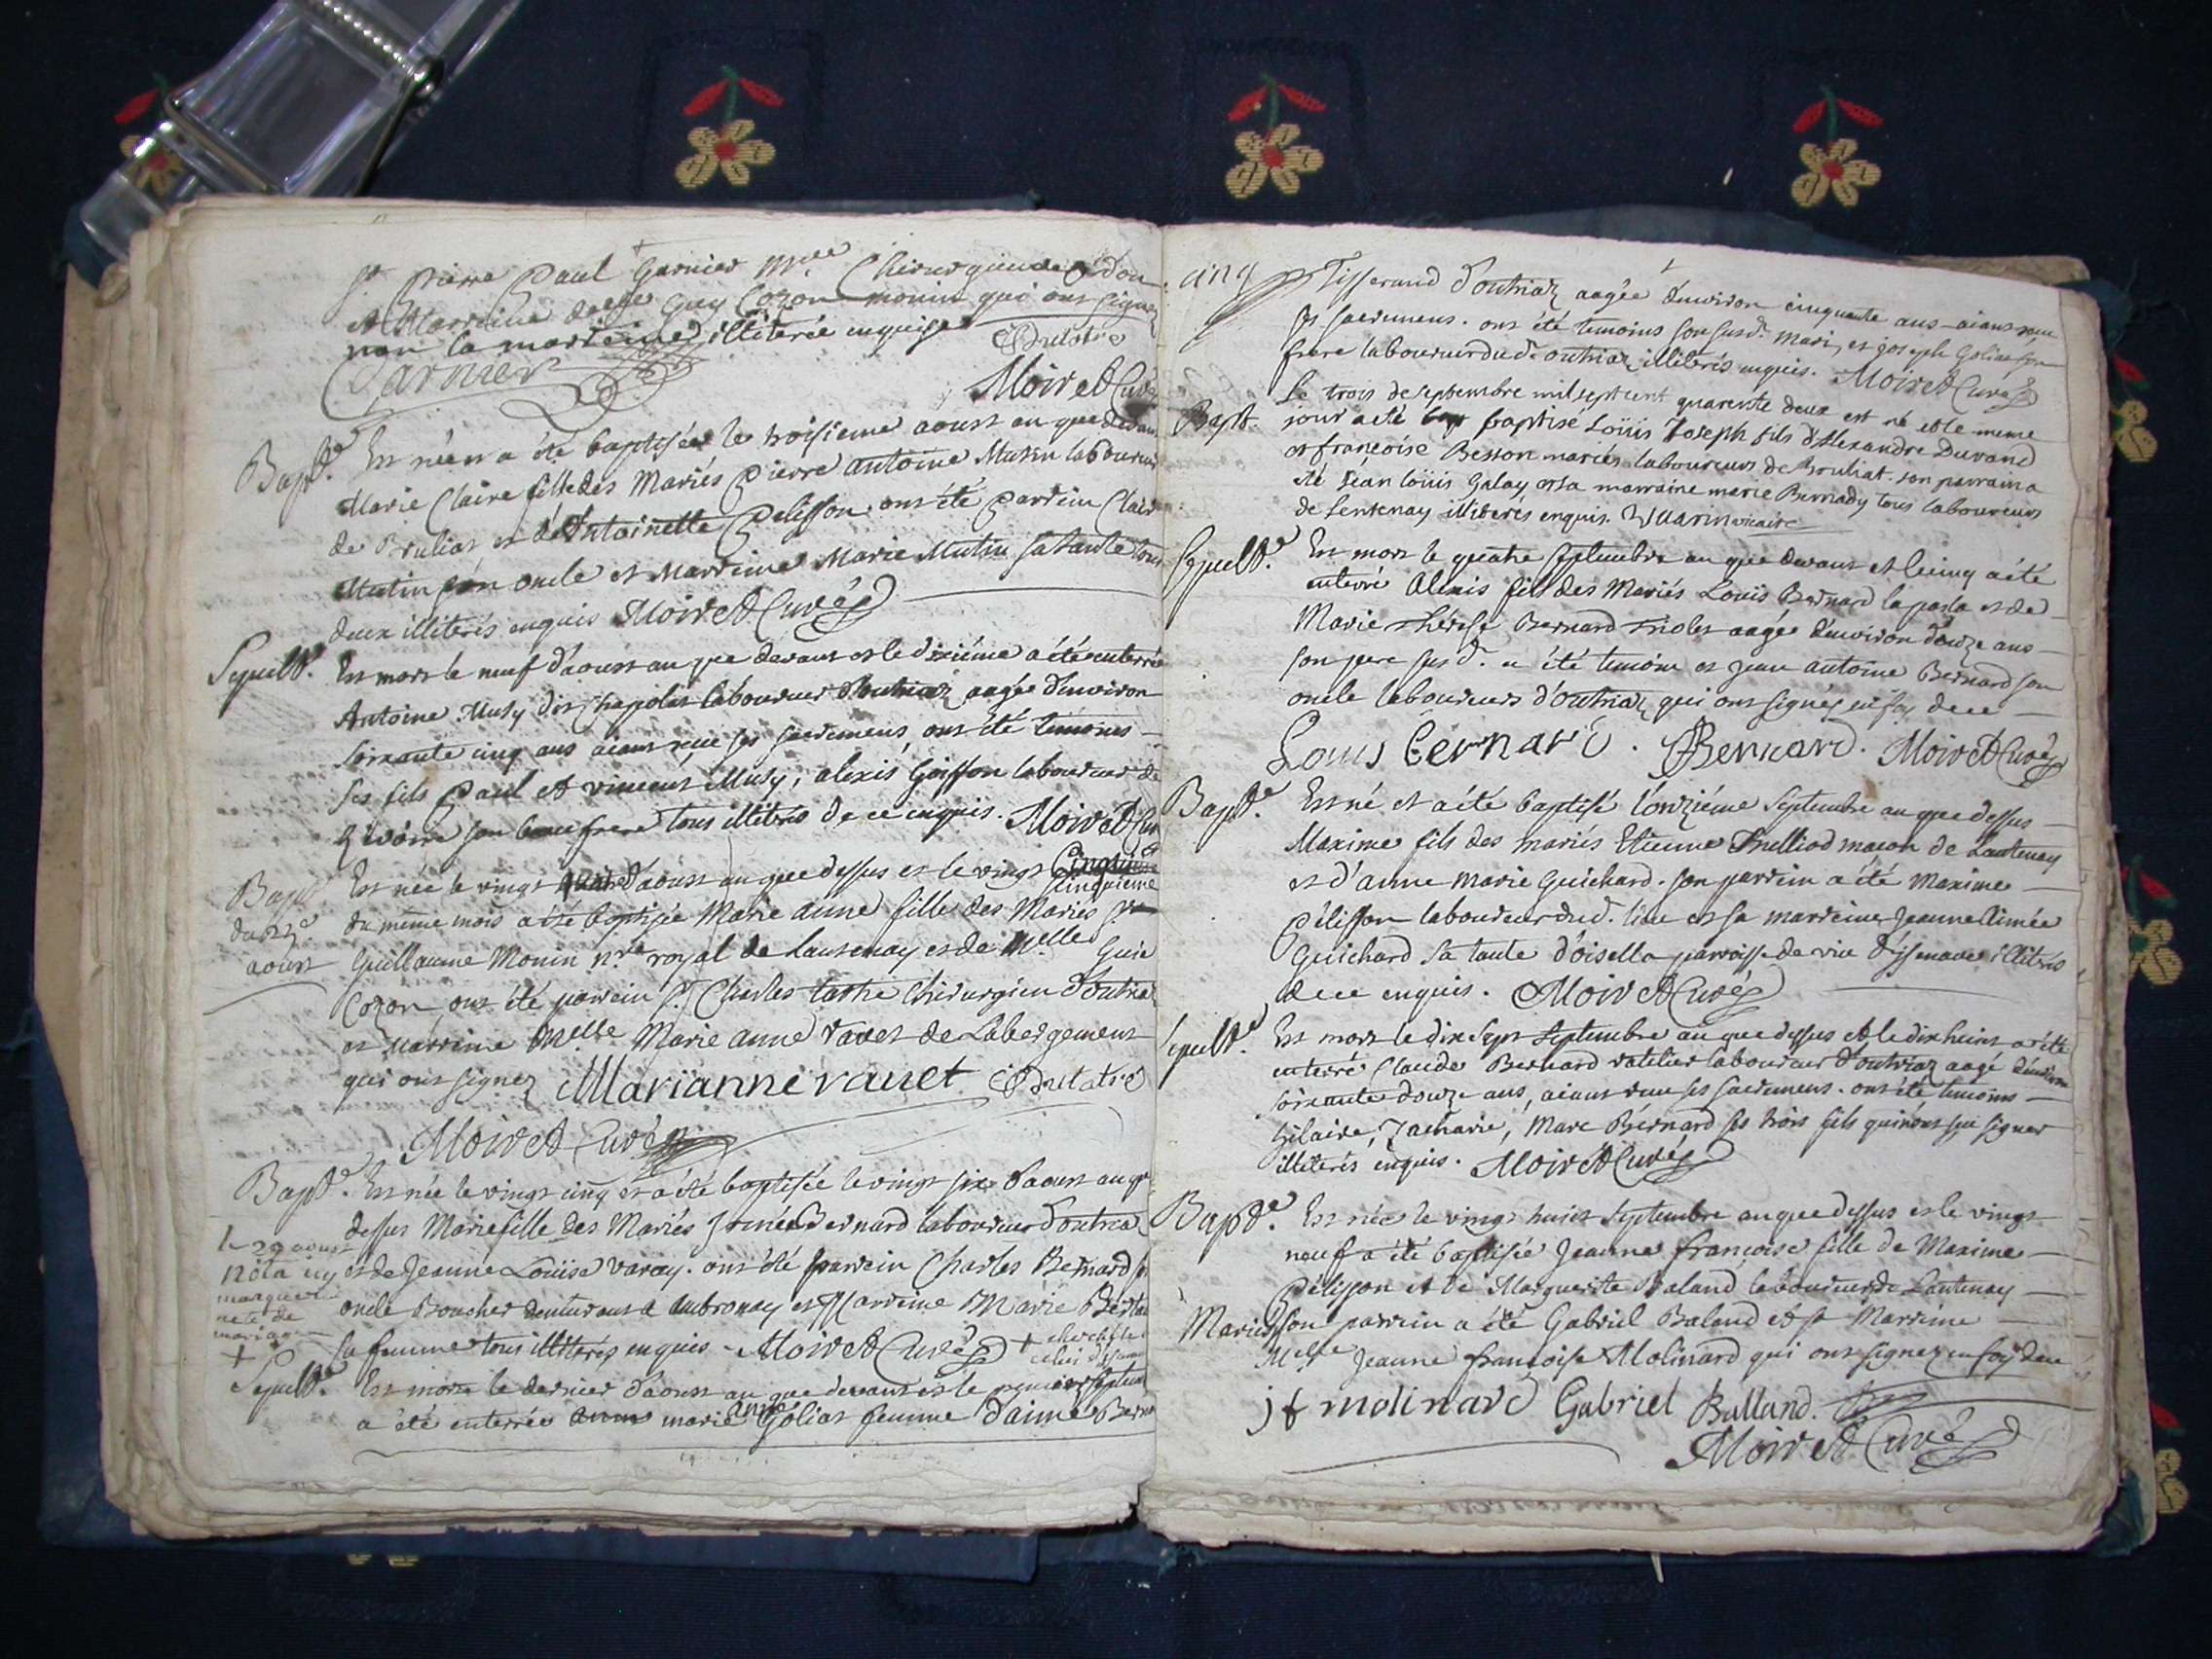 Sr Pierre Paul Garnier Mre Chirurgien
et Marraine delle Guy Cozon monin qui ont signez
non la marraine illiterée enquise
Dutatre
Garnier
Moiret Curé
Bapte. Est née et a été baptisée le troisieme aoust an que devant
Marie Claire fille des Mariés Pierre antoine Mutin laboureur
de Bruliat et d'Antoinette Pelisson. ont été Parrein Claude
Mutin son oncle et Marreine Marie Mutin sa tante tous
deux illiterés enquis Moiret Curé
Sepulte. Est mort le neuf d'aoust an que devant et le dixiéme a été enterré
Antoine Musy dit Chapolat laboureur d'outriaz aagée d'environ
soixante cinq ans aiant reçue ses sacremens, ont été temoins
ses fils Paul et vincent Musy, alexis Goiffon laboureur de
Izivoire son beaufrere tous illiterés de ce enquis. Moiret Curé
Bapte du 25e aoust
Est née le vingt quatre d'aoust an que dessus et le vingt cinquieme
du même mois a été baptisée Marie anne fille des Mariés Sr
Guillaume Monin nre royal de Lantenay et de Melle Guie
Cozon, ont été parrein Sr. Charles tastre Chirurgien d'outria
et Marreine Melle Marie anne ravet de Labergement
qui ont signez Marianne ravet Dutatre
Moiret Curé
Bapte. Est née le vingt cinq et a été baptisée le vingt six d'aoust an que
dessus Marie fille des Mariés Joseph Bernard laboureur d'outria
et de Jeanne Loüise varay. ont été parrein Charles Bernard son
oncle Boucher demeurant a Ambronay et Marreine Marie
sa femme tous illiterés enquis - Moiret Curé +
le 29 aoust
nota icy
manque
acte de
mariage
+
Sepulte. Est morte le dernier d'aoust an que devant et le premier septembre
a été enterrée marie anne Golias femme d'aimé Bernard
cinq
Tisserand d'outriaz aagée d'environ cinquante ans aiant reçue
ses sacremens. ont été temoins son susd. mari, et joseph Golias son
frere laboureur dud. outriaz illiterés enquis. Moiret Curé
Bapt. Le trois de septembre mil sept cent quarente deux est né et le meme
jour a eté baptisé Loüis Joseph fils d'Alexandre Durand
et françoise Besson mariés laboureurs de Bruliat. son parrain a
eté Jean loüis Galay et sa marraine marie Bernady tous laboureurs
de Lentenay illiterés enquis. Vuarin vicaire
Sepulte. Est mort le quatre septembre an que devant et le cinq a été
enterré Alexis fils des Mariés Louis Bernard la pata et de
Marie thérese Bernard aagée d'environ douze ans
son pere susd. a été temoin et jean antoine Bernard son
oncle laboureurs d'outriaz qui ont signés en foy de ce
Louis Bernard. JABernard. Moiret Curé
Bapte. Est né et a été baptisé l'onziéme septembre an que dessus
Maxime fils des mariés Etienne Trulliod maçon de Lantenay
et d'anne marie Guichard. son parrein a été Maxime
Pélisson laboureur dud. lieu et sa marreine Jeanne Aimée
Guichard sa tante d'oisella parroisse de vieu d'isenave illiterés
de ce enquis. Moiret Curé
Sepulte. Est mort le dix sept septembre an que dessus et le dix huict a été
enterré Claude Bernard ratelier laboureur d'outriaz aagé d'environ
soixante douze ans, aiant reçue ses sacremens. ont été temoins
hilaire, Zacharie, Marc Bernard ses trois fils qui n'ont sçu signer
illiterés enquis. Moiret Curé
Bapte. Est née le vingt huict septembre an que dessus et le vingt
neuf a été baptisée Jeanne françoise fille de Maxime
Pélisson et de Marguerite Baland laboureur de Lantenay
Mariés son parrein a été Gabriel Baland et sa Marreine
Melle Jeanne françoise Molinard qui ont signez en foy de ce
jf molinard Gabriel Balland.
Moiret Curé